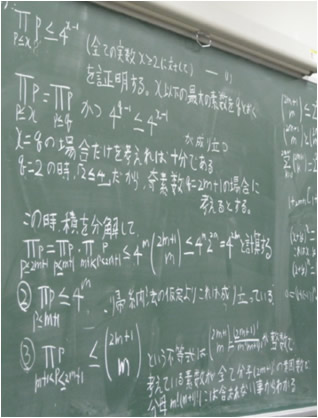 ∏_{p≤x} p ≤ 4^{x-1} (全ての実数 x≥2に対して) ― (1)
を証明する。x以下の最大の素数をqとおく
∏_{p≤x} p = ∏_{p≤q} p かつ 4^{q-1} ≤ 4^{x-1}
が成り立つ
x=qの場合だけを考えれば十分である
q=2の時、2≤4だから、奇素数q=2m+1の場合に
考えるとする。
この時、積を分解して、
∏_{p≤2m+1} p = ∏_{p≤m+1} p · ∏_{m+1<p≤2m+1} p ≤ 4^m \binom{2m+1}{m} ≤ 4^m 2^{2m} = 4^{2m} と計算する
② ∏_{p≤m+1} p ≤ 4^m 帰納法の仮定よりこれは成り立っている。
③ ∏_{m+1<p≤2m+1} p ≤ \binom{2m+1}{m} という不等式は \binom{2m+1}{m} = \frac{(2m+1)!}{m!(m+1)!} が整数で
考えている素数が全て分子(2m+1)!の因数で
分母m!(m+1)!には含まれない事から分かる